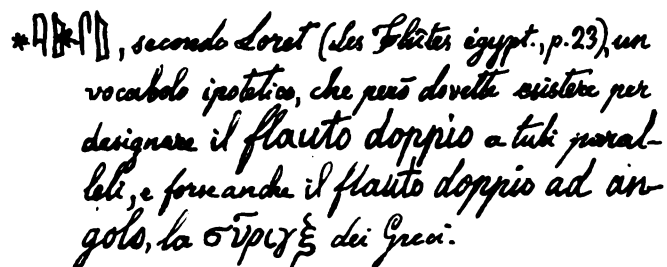 , secondo Loret (Les Flûtes égypt., p. 23), un
vocabolo ipotetico, che però dovette esistere per
designare il flauto doppio a tubi paral-
leli, e forse anche il flauto doppio ad an-
golo, la σῦριγξ dei Greci.